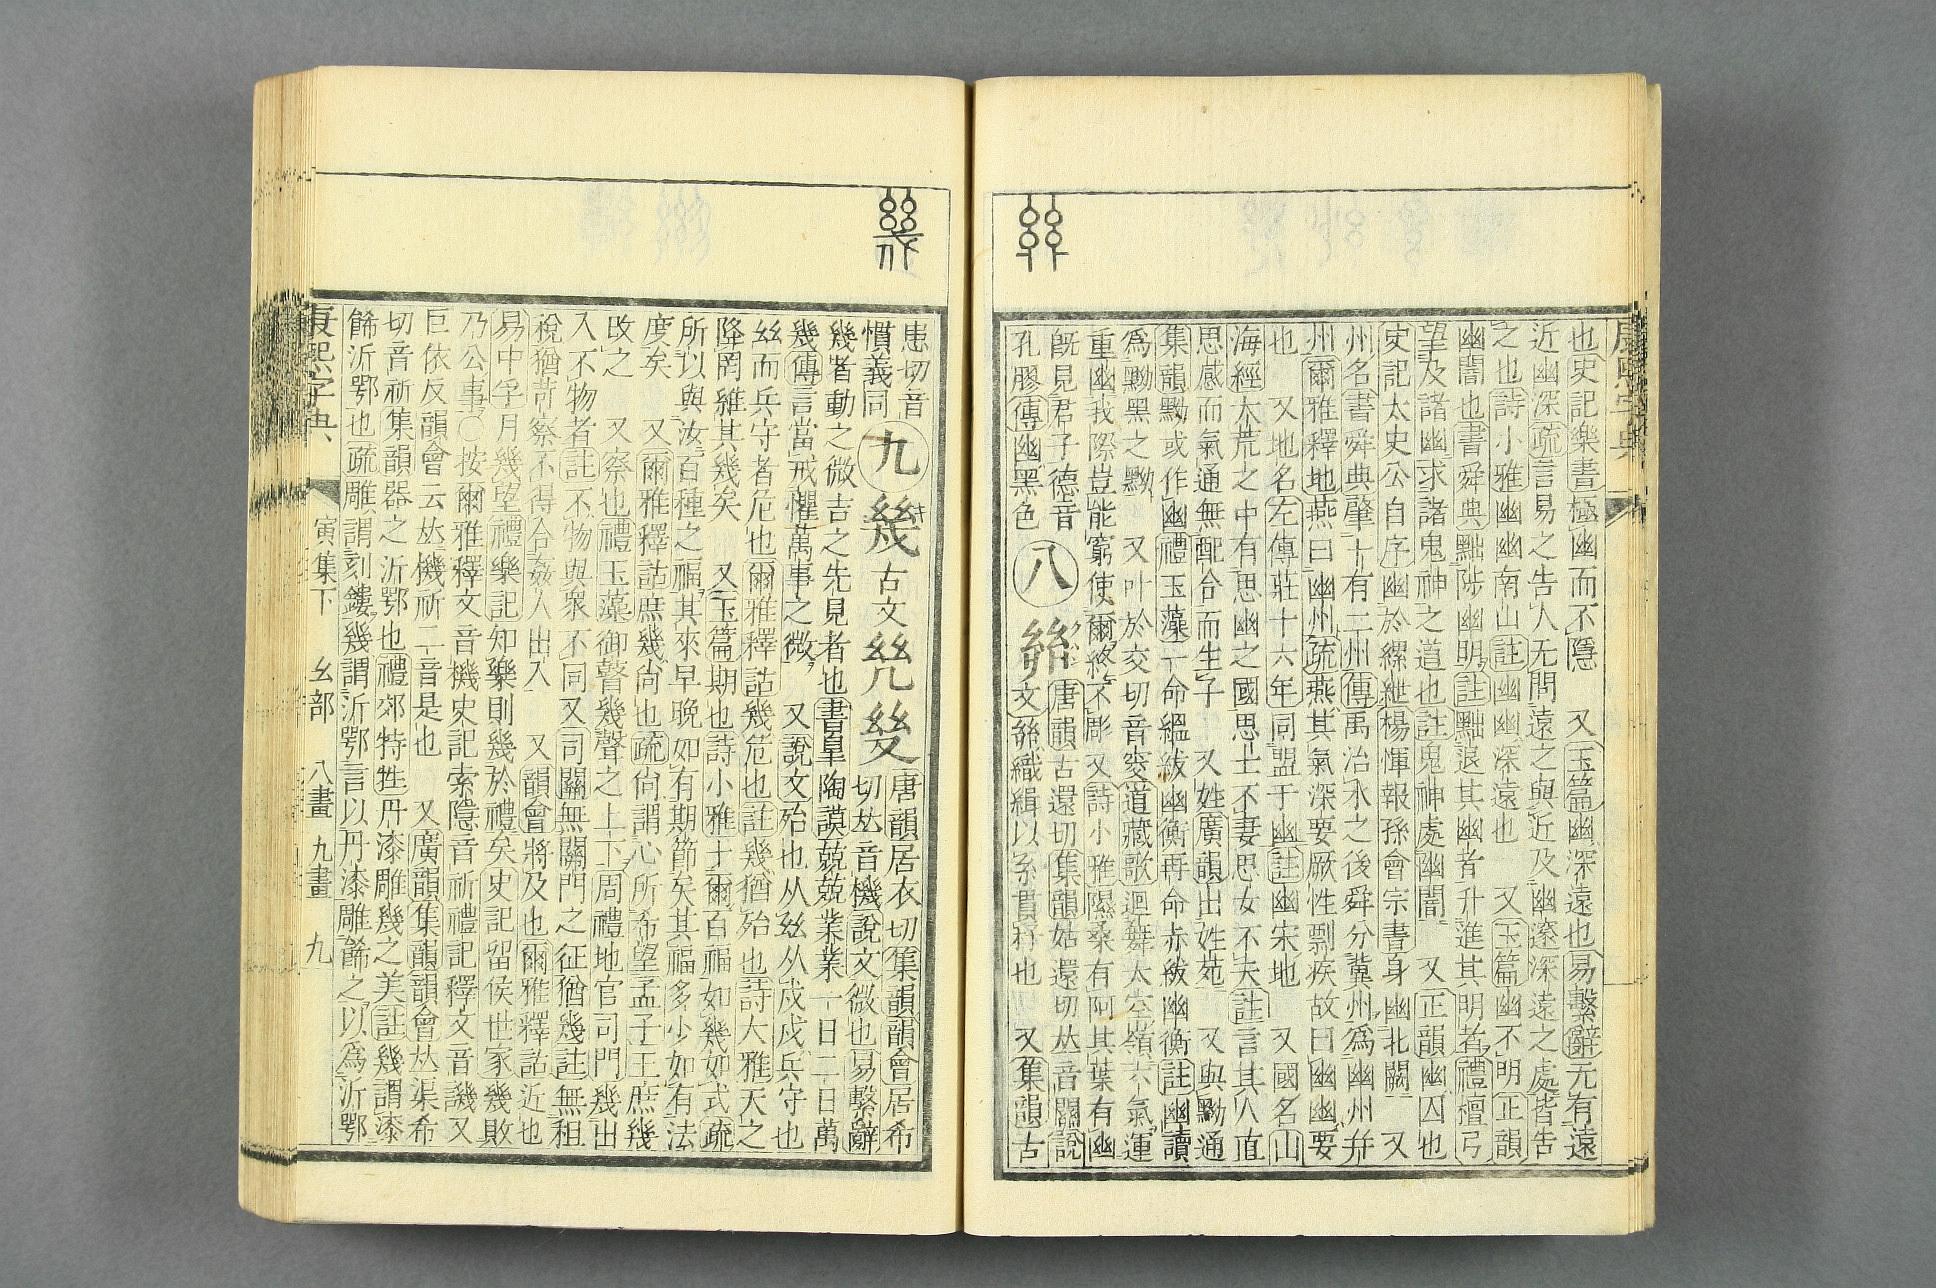 康熙字典
也史記樂書極幽而不隱 又玉篇幽深遠也易繫辭无有遠
近幽深疏言易之告人无問遠之與近及幽邃深遠之處皆告
之也詩小雅幽幽南山註幽幽深遠也 又玉篇幽不明正韻
幽闇也書舜典黜陟幽明註黜退其幽者升進其明者禮檀弓
望及諸幽求諸鬼神之道也註鬼神處幽闇 又正韻幽囚也
史記太史公自序幽於縲紲楊惲報孫會宗書身幽北闕 又
州名書舜典肇十有二州傳禹治水之後舜分冀州爲幽州幷
州爾雅釋地燕曰幽州疏燕其氣深要厥性剽疾故曰幽幽要
也 又地名左傳莊十六年同盟于幽註幽宋地 又國名山
海經大荒之中有思幽之國思士不妻思女不夫註言其人直
思感而氣通無配合而生子 又姓廣韻出姓苑 又與黝通
集韻黝或作幽禮玉藻一命縕韍幽衡再命赤韍幽衡註幽讀
爲黝黑之黝 又叶於交切音窔道藏歌迴舞太空嶺六氣運
重幽我際豈能窮使爾終不彫 又詩小雅隰桑有阿其葉有幽
旣見君子德音
孔膠傳幽黑色
八
唐韻古還切集韻姑還切𠀤音關說
文織緝以糸貫杼也 又集韻古
患切音
慣義同
九
幾
古文
唐韻居衣切集韻韻會居希
切𠀤音機說文微也易繫辭
幾者動之微吉之先見者也書皐陶謨兢兢業業一日二日萬
幾傳言當戒懼萬事之微 又說文殆也从𢆶从戍戍兵守也
𢆶而兵守者危也爾雅釋詁幾危也註幾猶殆也詩大雅天之
降罔維其幾矣 又玉篇期也詩小雅卜爾百福如幾如式疏
所以與汝百種之福其來早晚如有期節矣其福多少如有法
度矣 又爾雅釋詁庶幾尚也疏尚謂心所希望孟子王庶幾
改之 又察也禮玉藻御瞽幾聲之上下周禮地官司門幾出
入不物者註不物與衆不同又司關無關門之征猶幾註無租
稅猶苛察不得令姦人出入 又韻會將及也爾雅釋詁近也
易中孚月幾望禮樂記知樂則幾於禮矣史記留侯世家幾敗
乃公事○按爾雅釋文音機史記索隱音祈禮記釋文音譏又
巨依反韻會云𠀤機祈二音是也 又廣韻集韻韻會𠀤渠希
切音祈集韻器之沂鄂也禮郊特牲丹漆雕幾之美註幾謂漆
飾沂鄂也疏雕謂刻鏤幾謂沂鄂言以丹漆雕飾之以爲沂鄂
康熙字典
寅集下 幺部 八畫 九畫 九